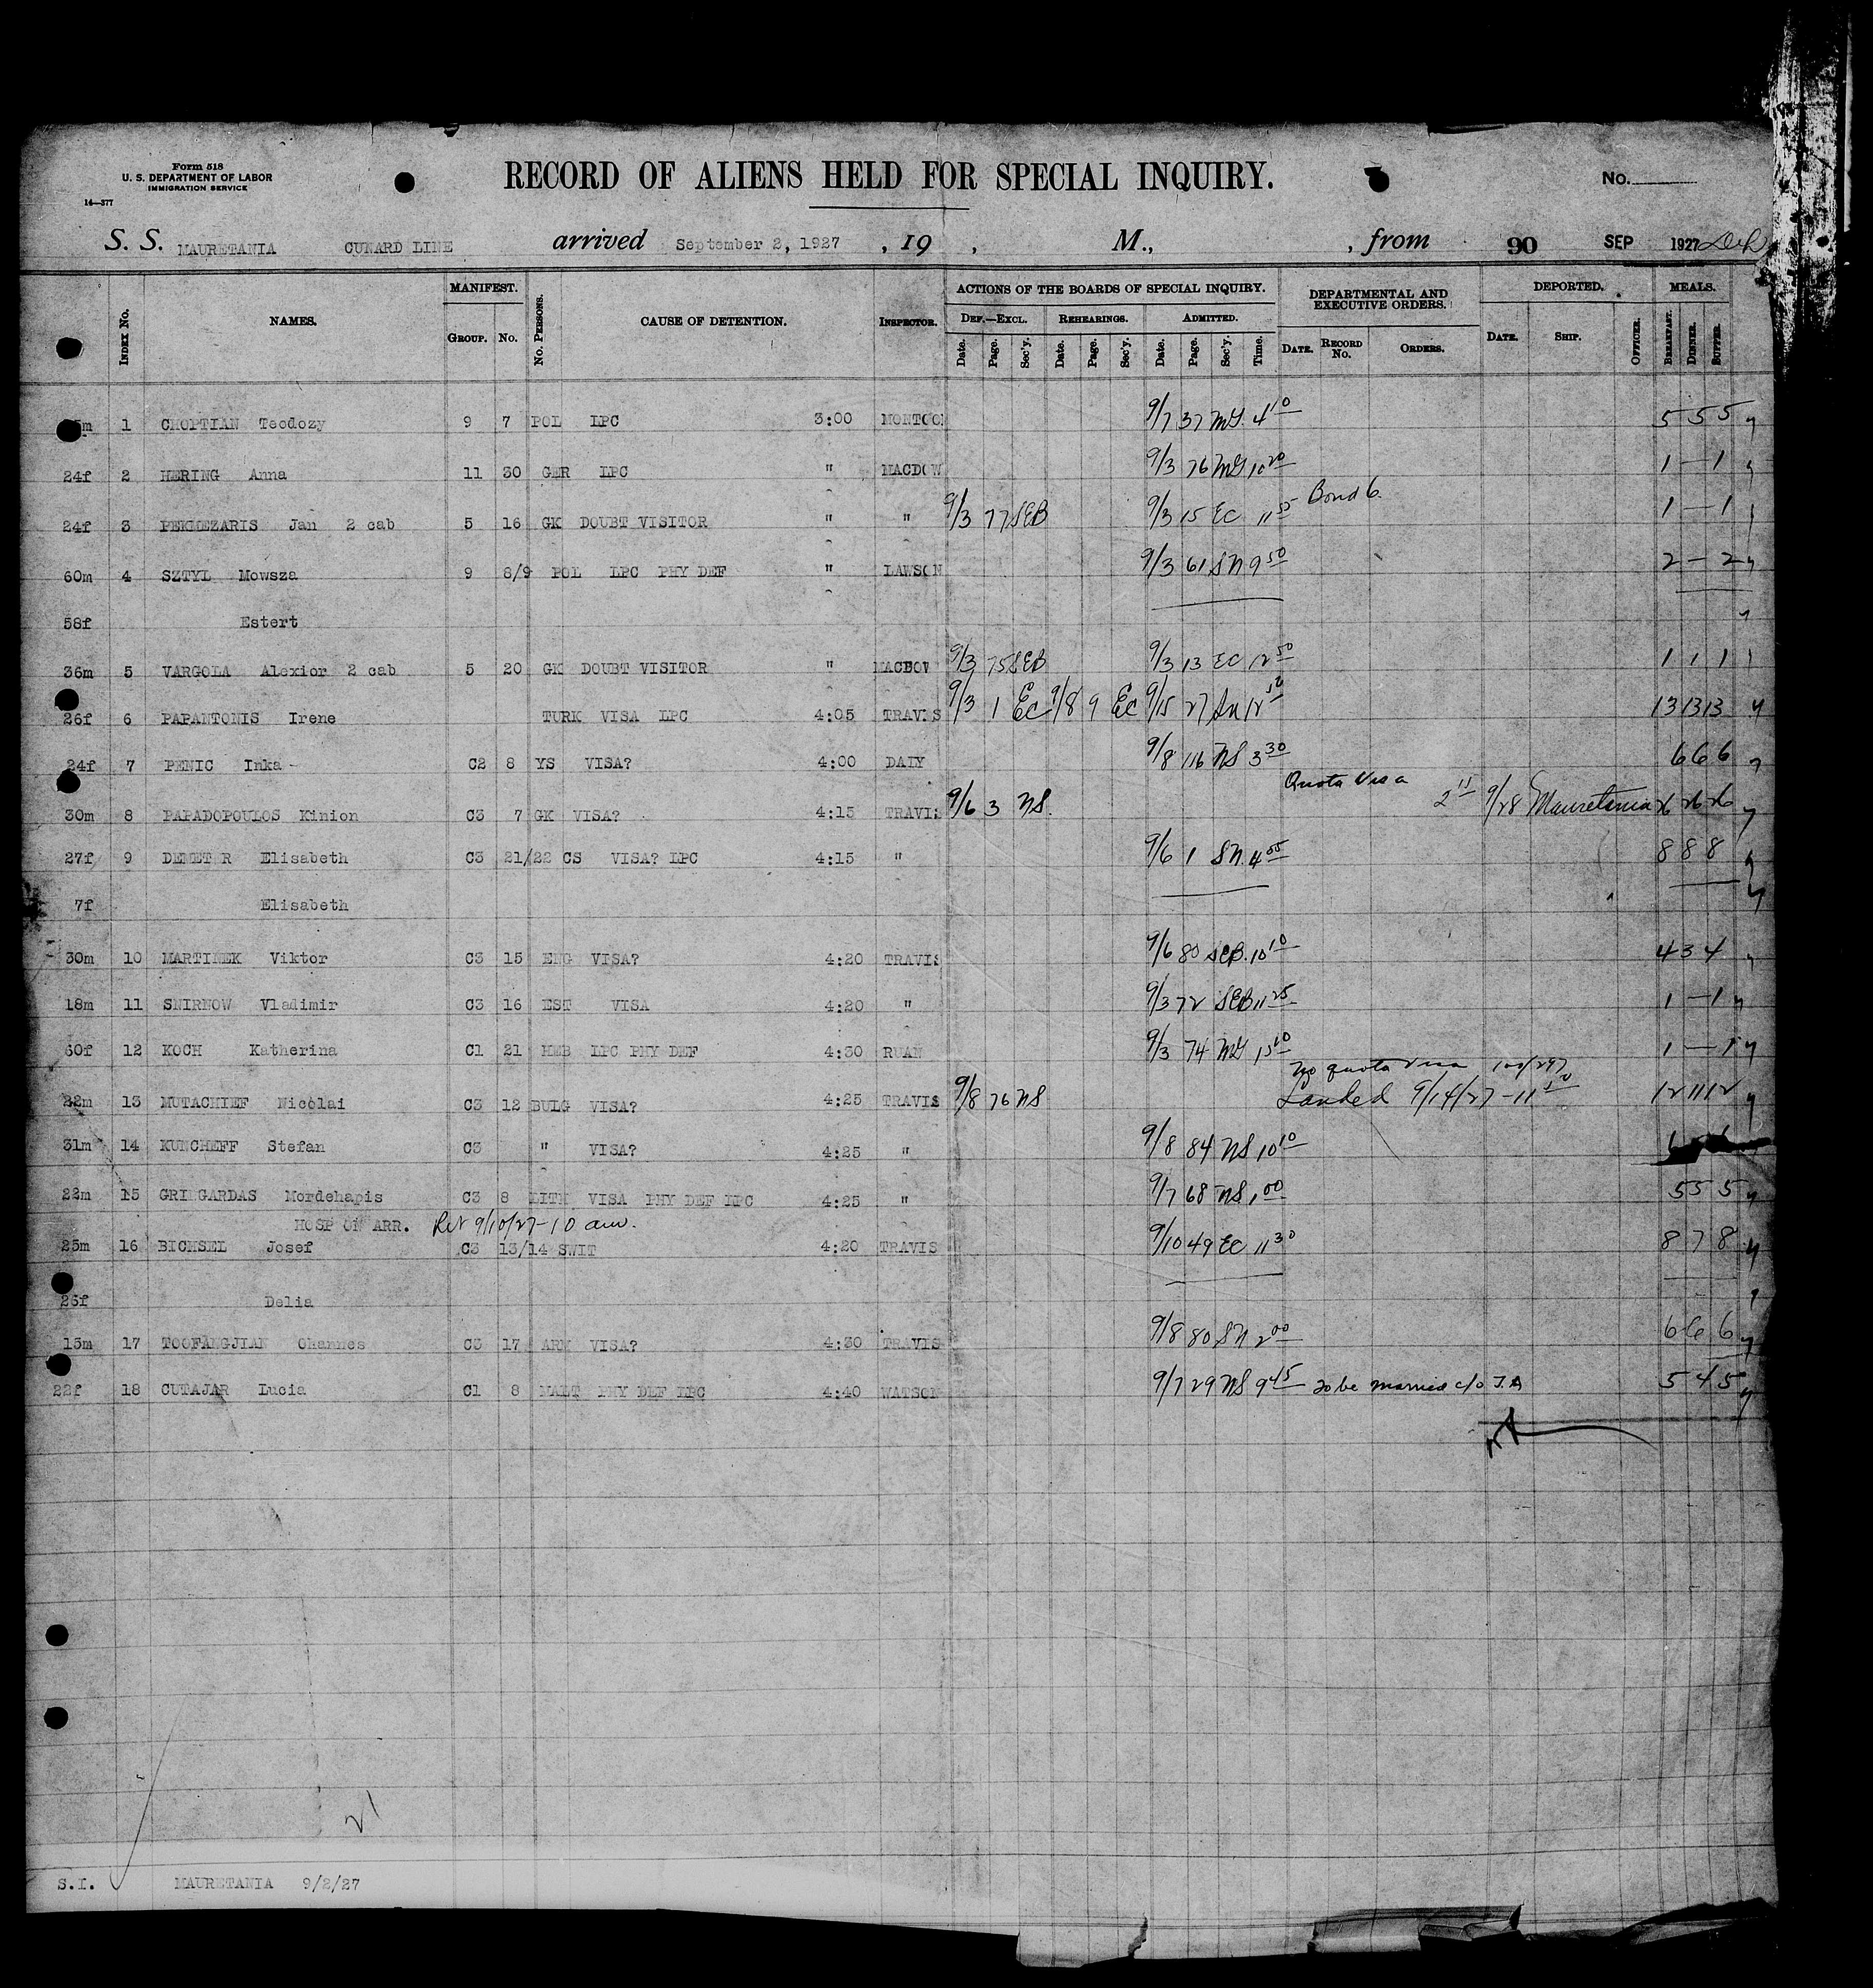 Form 518
U. S. DEPARTMENT OF LABOR
IMMIGRATION SERVICE
14—377
RECORD OF ALIENS HELD FOR SPECIAL INQUIRY.
No.
S. S. MAURETANIA CUNARD LINE arrived September 2, 1927 , 19 , M., , from 90 SEP 1927
INDEX NO. NAMES. MANIFEST. GROUP. NO. NO. PERSONS. CAUSE OF DETENTION. INSPECTOR. ACTIONS OF THE BOARDS OF SPECIAL INQUIRY. DEPARTMENTAL AND EXECUTIVE ORDERS. DEPORTED. MEALS.
DEF.—EXCL. REHEARINGS. ADMITTED.
Date. Page. Sec'y. Date. Page. Sec'y. Date. Page. Sec'y. Time. DATE. RECORD NO. ORDERS. DATE. SHIP. OFFICER. BREAKFAST. DINNER. SUPPER.
1 CHOPTIAN Teodozy 9 7 POL LPC 3:00 9/7 37 MG 4 10 5 5 5
24f 2 HERING Anna 11 30 GER LPC " MACDOW 9/3 76 MG 10 20 1 — 1
Bond 6
24f 3 PEKMEZARIS Jan 2 cab 5 16 GK DOUBT VISITOR " " 9/3 77 SEB 9/3 15 EC 11 55 1 — 1
60m 4 SZTYL Mowsza 9 8/9 POL LPC PHY DEF " LAWSON 9/3 61 SN 9 50 2 — 2
58f Estert
36m 5 VARGOLA Alexior 2 cab 5 20 GK DOUBT VISITOR " 9/3 75 SEB 9/3 13 EC 12 50 1 1 1
26f 6 PAPANTONIS Irene TURK VISA LPC 4:05 TRAVIS 9/3 1 EC 9/8 9 EC 9/15 27 SN 13 13 13
24f 7 PENIC Inka C2 8 YS VISA? 4:00 DALY 9/8 116 NS 3 30 6 6 6
Quota Visa
30m 8 PAPADOPOULOS Kinion C3 7 GK VISA? 4:15 TRAVIS 9/6 3 NS. 2 11 9/28 Mauretania 26 26 26
27f 9 DEMETER Elisabeth C3 21/22 CS VISA? LPC 4:15 " 9/6 1 SN. 4 00 8 8 8
7f Elisabeth
30m 10 MARTINEK Viktor C3 15 ENG VISA? 4:20 TRAVIS 9/6 80 SEB. 10 10 4 3 4
18m 11 SMIRNOW Vladimir C3 16 EST VISA 4:20 " 9/3 72 SEB 11 25 1 — 1
60f 12 KOCH Katherina C1 21 HEB LPC PHY DEF 4:30 RYAN 9/3 74 MG 1 — 1
No quota Visa
22m 13 MUTACHIEF Nicolai C3 12 BULG VISA? 4:25 TRAVIS 9/8 76 NS Landed 9/14/27 - 11 12 11 12
31m 14 KUNCHEFF Stefan C3 " VISA? 4:25 " 9/8 84 NS 10 10
22m 15 GRINGARDAS Mordehapis C3 8 LITH VISA PHY DEF LPC 4:25 " 9/7 68 NS 1 00 5 5 5
HOSP ON ARR. Ret 9/10/27 - 10 am.
25m 16 BICHSEL Josef C3 13/14 SWIT 4:20 TRAVIS 9/10 49 EC 11 30 8 7 8
26f Delia
15m 17 TOOFANGJIAN Ohannes C3 17 ARM VISA? 4:30 TRAVIS 9/8 80 SN 2 00 6 6 6
22f 18 CUTAJAR Lucia C1 8 MALT PHY DEF LPC 4:40 WATSON 9/7 29 NS 9 45 To be married c/o T.A 5 4 5
21
S.I. MAURETANIA 9/2/27